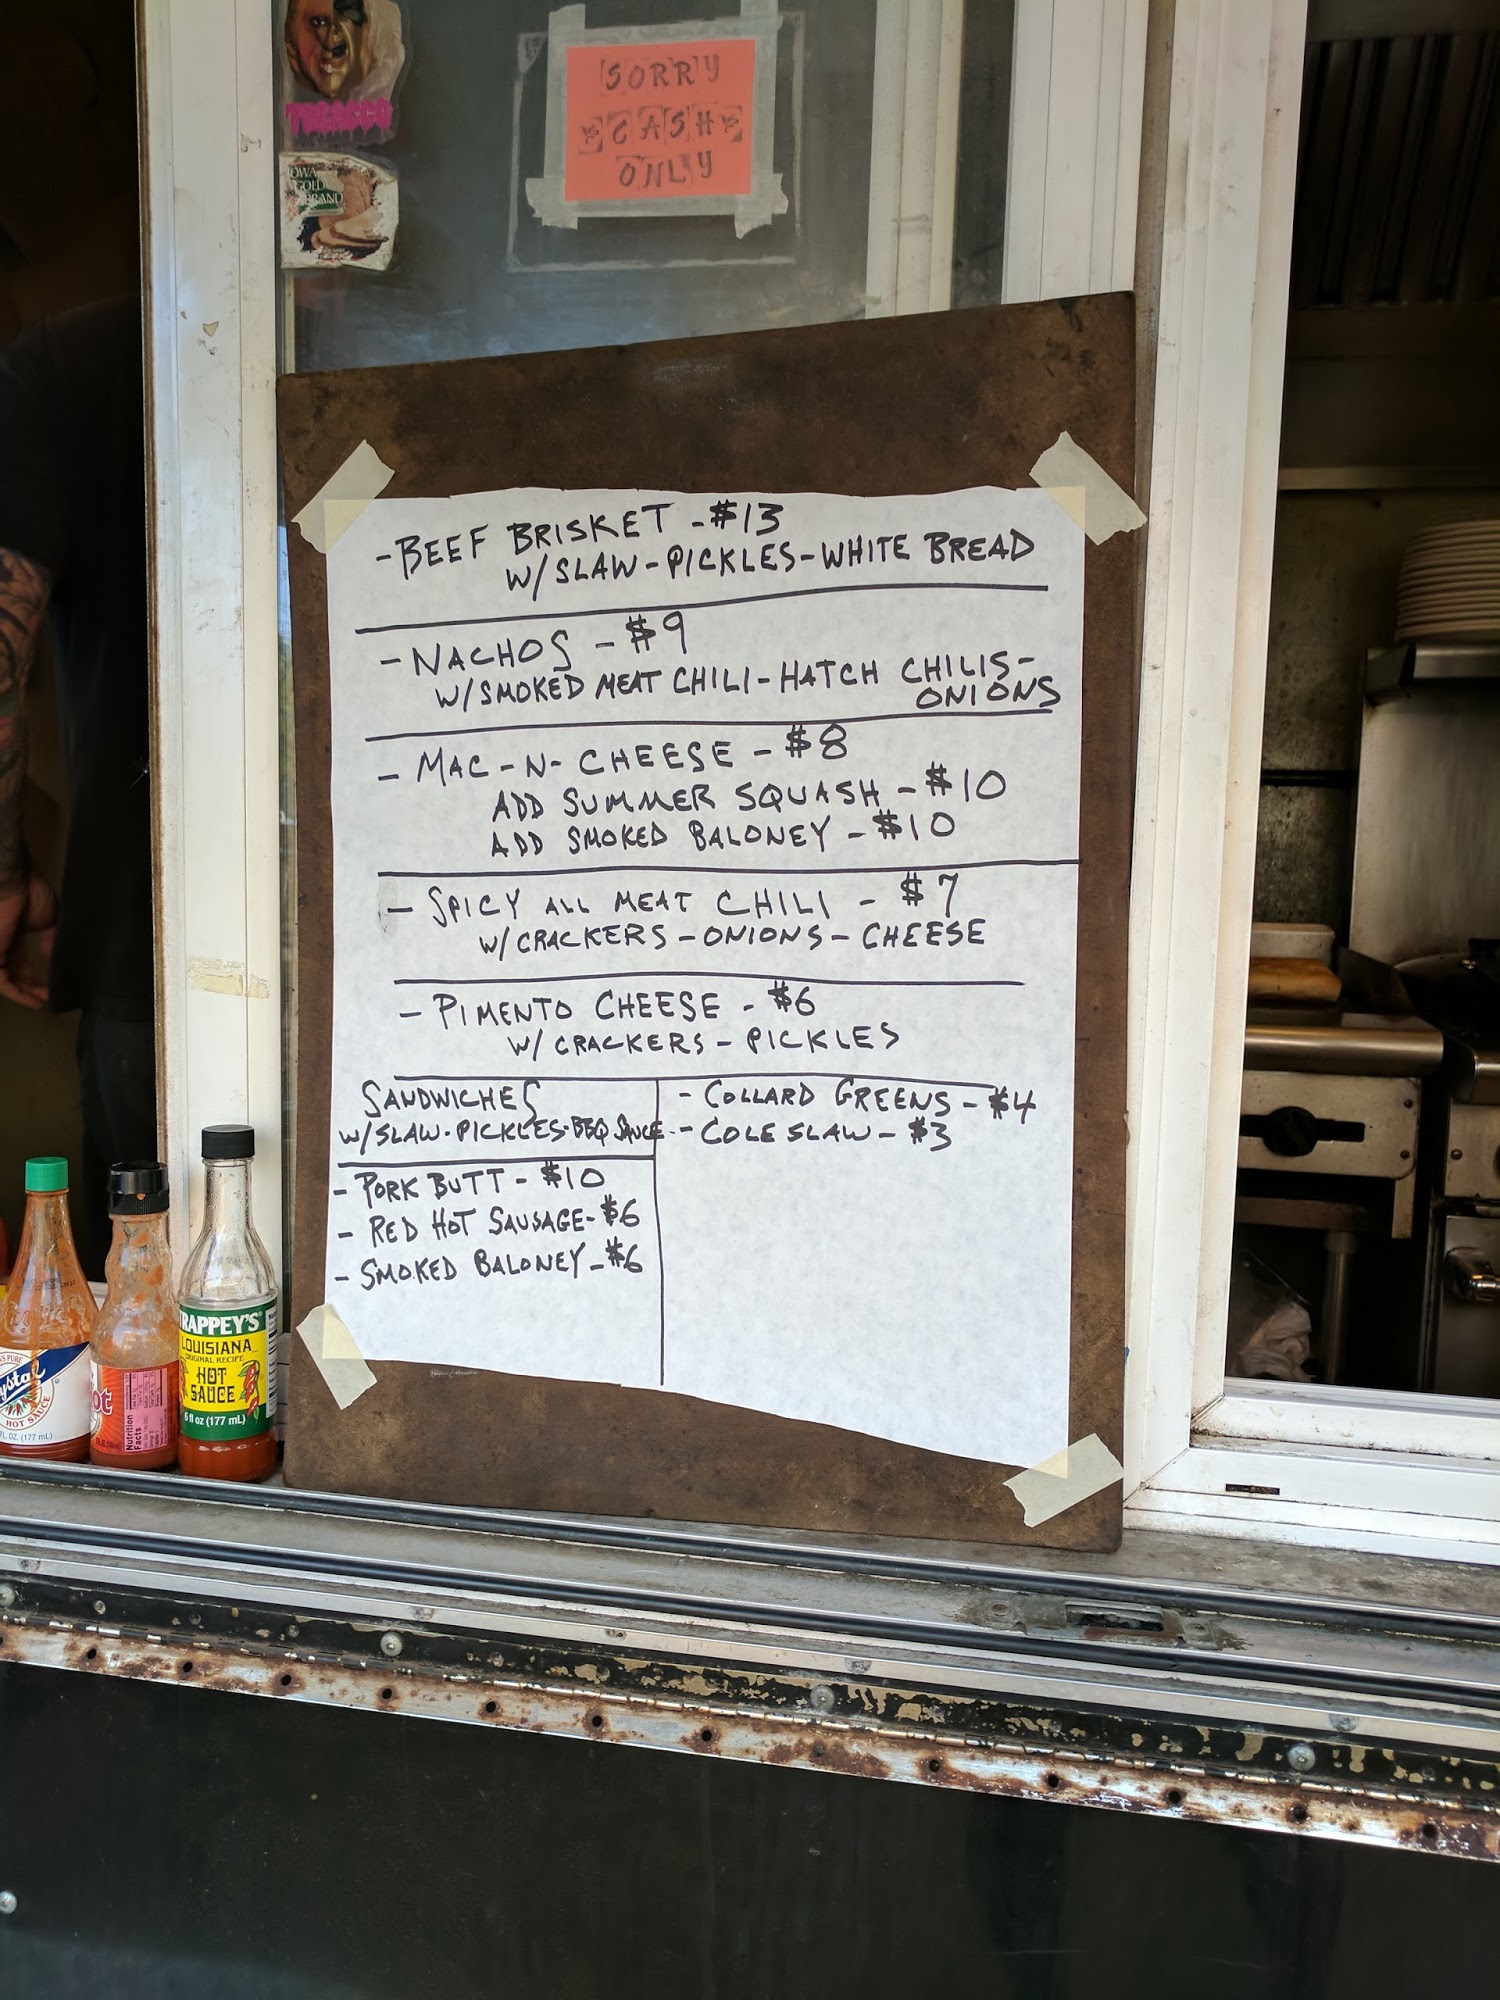 TOBACCO
IOWA
GOLD
BRAND
SORRY
CASH
ONLY
- BEEF BRISKET - $13
W/ SLAW - PICKLES - WHITE BREAD
- NACHOS - $9
W/ SMOKED MEAT CHILI - HATCH CHILIS -
ONIONS
- MAC - N - CHEESE - $8
ADD SUMMER SQUASH - $10
ADD SMOKED BALONEY - $10
- SPICY ALL MEAT CHILI - $7
W/ CRACKERS - ONIONS - CHEESE
- PIMENTO CHEESE - $6
W/ CRACKERS - PICKLES
SANDWICHES
W/ SLAW - PICKLES - BBQ SAUCE
- PORK BUTT - $10
- RED HOT SAUSAGE - $6
- SMOKED BALONEY - $6
- COLLARD GREENS - $4
- COLE SLAW - $3
PURE
ystal
HOT SAUCE
FL. OZ. (177 mL)
ot
Nutrition
Facts
TRAPPEY'S
LOUISIANA
ORIGINAL RECIPE
HOT
SAUCE
6 fl oz (177 mL)